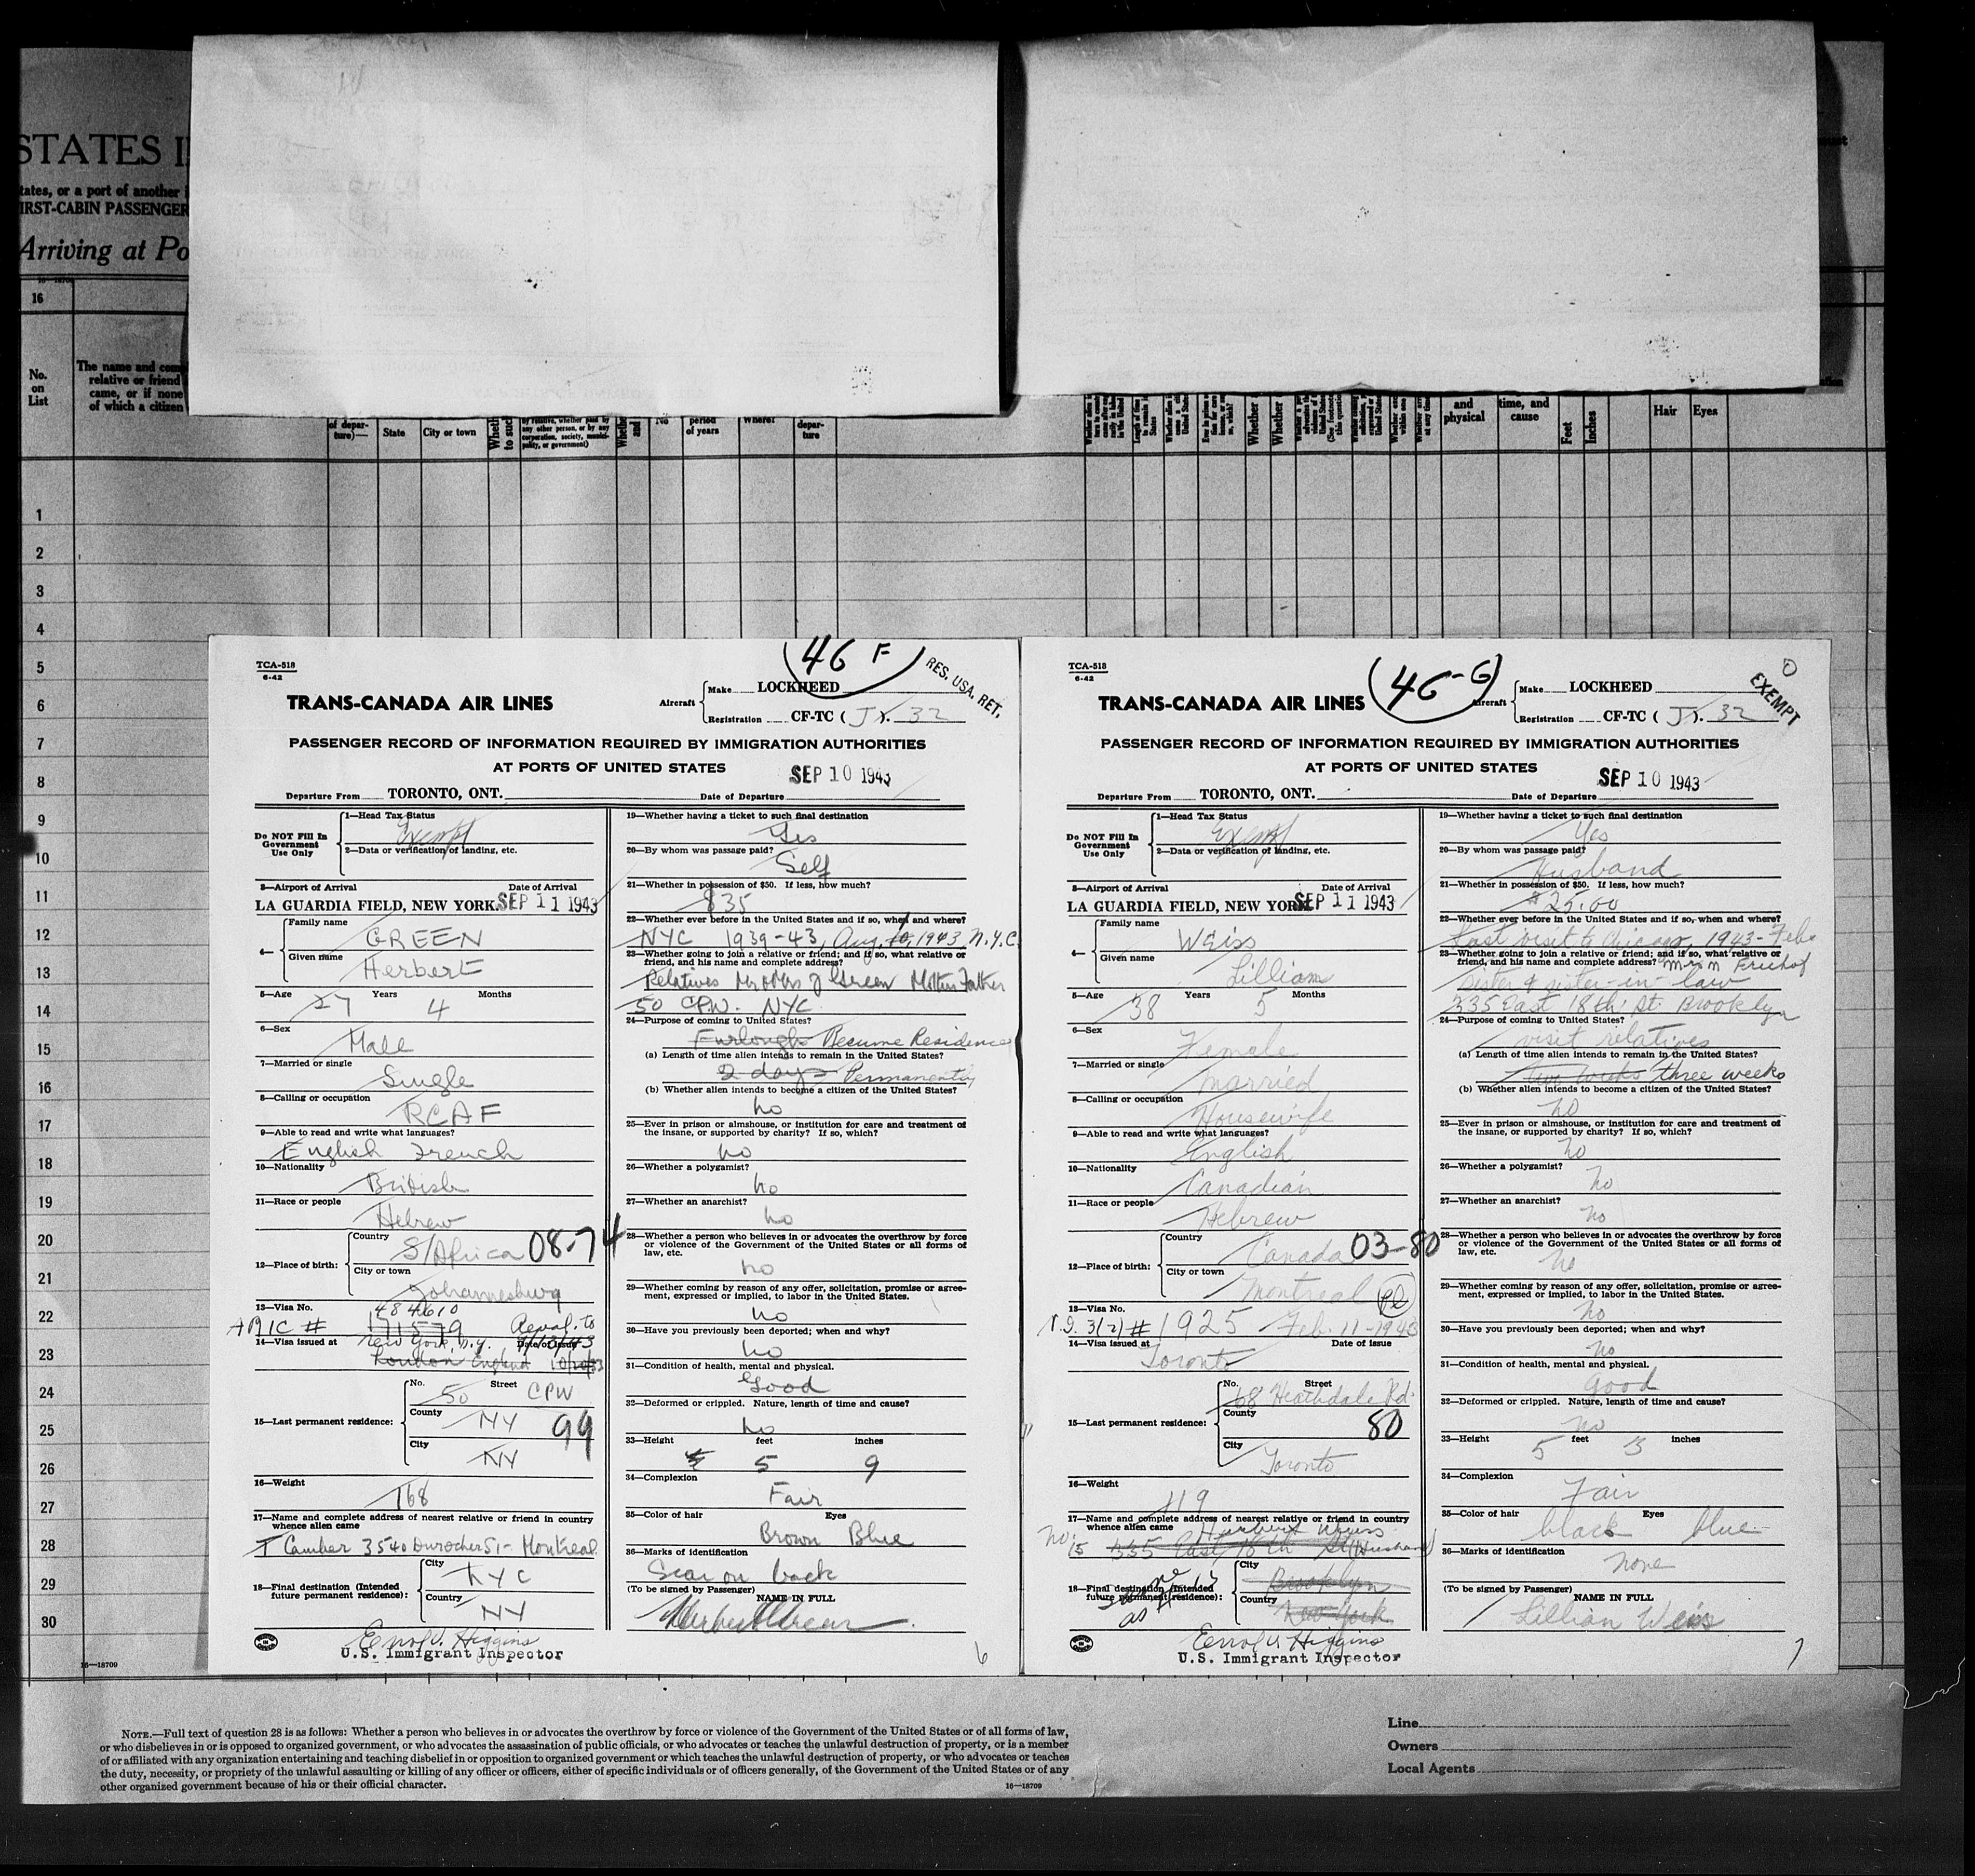 STATES
tates, or a port of another
IRST-CABIN PASSENGER
Arriving at Po
16
No.
on
List
The name and com
relative or friend
came, or if none
of which a citizen
of depar-
ture)—
State
City or town
by relative, whether paid by
any other person, or by any
corporation, society, munici-
pality, or government)
No
period
of years
Where?
depar-
ture
and
physical
time, and
cause
Feet
Inches
Hair
Eyes
1
2
3
4
5
6
7
8
9
10
11
12
13
14
15
16
17
18
19
20
21
22
23
24
25
26
27
28
29
30
TCA-518
6-42
46 F
RES. USA. RET.
TRANS-CANADA AIR LINES
Aircraft
Make LOCKHEED
Registration CF-TC ( J ). 32
PASSENGER RECORD OF INFORMATION REQUIRED BY IMMIGRATION AUTHORITIES
AT PORTS OF UNITED STATES
SEP 10 1943
Departure From TORONTO, ONT. Date of Departure
Do NOT Fill In
Government
Use Only
1—Head Tax Status
Exempt
2—Data or verification of landing, etc.
3—Airport of Arrival Date of Arrival
LA GUARDIA FIELD, NEW YORK. SEP 11 1943
4— Family name
GREEN
Given name
Herbert
5—Age Years Months
27 4
6—Sex
Male
7—Married or single
Single
8—Calling or occupation
RCAF
9—Able to read and write what languages?
English French
10—Nationality
British
11—Race or people
Hebrew
12—Place of birth:
Country
S/Africa 08-74
City or town
Johannesburg
13—Visa No. 484610
171579
14—Visa issued at New York, N.Y. Date of issue
London England
15—Last permanent residence:
No. Street
50 CPW
County
NY 99
City
NY
16—Weight
168
17—Name and complete address of nearest relative or friend in country
whence alien came
J Camber 3540 Durocher St- Montreal
18—Final destination (Intended
future permanent residence):
City
NYC
Country
NY
Errol V. Higgins
U.S. Immigrant Inspector
19—Whether having a ticket to such final destination
Yes
20—By whom was passage paid?
Self
21—Whether in possession of $50. If less, how much?
$35
22—Whether ever before in the United States and if so, when and where?
NYC 1939-43, Aug. 10, 1943 N.Y.C.
23—Whether going to join a relative or friend; and if so, what relative or
friend, and his name and complete address?
Relatives Mr & Mrs J Green Mother Father
50 CPW. NYC
24—Purpose of coming to United States?
Furlough Resume Residence
(a) Length of time alien intends to remain in the United States?
2 days Permanently
(b) Whether alien intends to become a citizen of the United States?
no
25—Ever in prison or almshouse, or institution for care and treatment of
the insane, or supported by charity? If so, which?
no
26—Whether a polygamist?
no
27—Whether an anarchist?
no
28—Whether a person who believes in or advocates the overthrow by force
or violence of the Government of the United States or all forms of
law, etc.
no
29—Whether coming by reason of any offer, solicitation, promise or agree-
ment, expressed or implied, to labor in the United States.
no
30—Have you previously been deported; when and why?
no
31—Condition of health, mental and physical.
Good
32—Deformed or crippled. Nature, length of time and cause?
no
33—Height feet inches
5 9
34—Complexion
Fair
35—Color of hair Eyes
Brown Blue
36—Marks of identification
Scar on back
(To be signed by Passenger) NAME IN FULL
Herbert Green
6
TCA-518
6-42
46-G
0
EXEMPT
TRANS-CANADA AIR LINES
Aircraft
Make LOCKHEED
Registration CF-TC ( J ). 32
PASSENGER RECORD OF INFORMATION REQUIRED BY IMMIGRATION AUTHORITIES
AT PORTS OF UNITED STATES
SEP 10 1943
Departure From TORONTO, ONT. Date of Departure
Do NOT Fill In
Government
Use Only
1—Head Tax Status
Exempt
2—Data or verification of landing, etc.
3—Airport of Arrival Date of Arrival
LA GUARDIA FIELD, NEW YORK. SEP 11 1943
4— Family name
Weiss
Given name
Lilliam
5—Age Years Months
38 5
6—Sex
Female
7—Married or single
Married
8—Calling or occupation
Housewife
9—Able to read and write what languages?
English
10—Nationality
Canadian
11—Race or people
Hebrew
12—Place of birth:
Country
Canada 03-80
City or town
Montreal
13—Visa No.
3(2) # 1925 Feb. 11-1943
14—Visa issued at Date of issue
Toronto
15—Last permanent residence:
No. Street
68 Heathdale Rd.
County
80
City
Toronto
16—Weight
119
17—Name and complete address of nearest relative or friend in country
whence alien came Herbert Weiss
No. 15 335 East 18th St (Husband)
18—Final destination (Intended
future permanent residence):
same as # 15
City
Brooklyn
Country
New York
Errol V. Higgins
U.S. Immigrant Inspector
19—Whether having a ticket to such final destination
Yes
20—By whom was passage paid?
Husband
21—Whether in possession of $50. If less, how much?
$25.00
22—Whether ever before in the United States and if so, when and where?
Last visit to Chicago, 1943-Feb.
23—Whether going to join a relative or friend; and if so, what relative or
friend, and his name and complete address? Mrs M
sister & sister-in-law
335 East 18th St. Brooklyn
24—Purpose of coming to United States?
visit relatives
(a) Length of time alien intends to remain in the United States?
two weeks three weeks
(b) Whether alien intends to become a citizen of the United States?
no
25—Ever in prison or almshouse, or institution for care and treatment of
the insane, or supported by charity? If so, which?
no
26—Whether a polygamist?
no
27—Whether an anarchist?
no
28—Whether a person who believes in or advocates the overthrow by force
or violence of the Government of the United States or all forms of
law, etc.
no
29—Whether coming by reason of any offer, solicitation, promise or agree-
ment, expressed or implied, to labor in the United States.
no
30—Have you previously been deported; when and why?
no
31—Condition of health, mental and physical.
good
32—Deformed or crippled. Nature, length of time and cause?
no
33—Height feet inches
5 3
34—Complexion
Fair
35—Color of hair Eyes
black blue
36—Marks of identification
none
(To be signed by Passenger) NAME IN FULL
Lillian Weiss
7
16—18709
NOTE.—Full text of question 28 is as follows: Whether a person who believes in or advocates the overthrow by force or violence of the Government of the United States or of all forms of law,
or who disbelieves in or is opposed to organized government, or who advocates the assassination of public officials, or who advocates or teaches the unlawful destruction of property, or is a member
of or affiliated with any organization entertaining and teaching disbelief in or opposition to organized government or which teaches the unlawful destruction of property, or who advocates or teaches
the duty, necessity, or propriety of the unlawful assaulting or killing of any officer or officers, either of specific individuals or of officers generally, of the Government of the United States or of any
other organized government because of his or their official character.
16—18709
Line
Owners
Local Agents